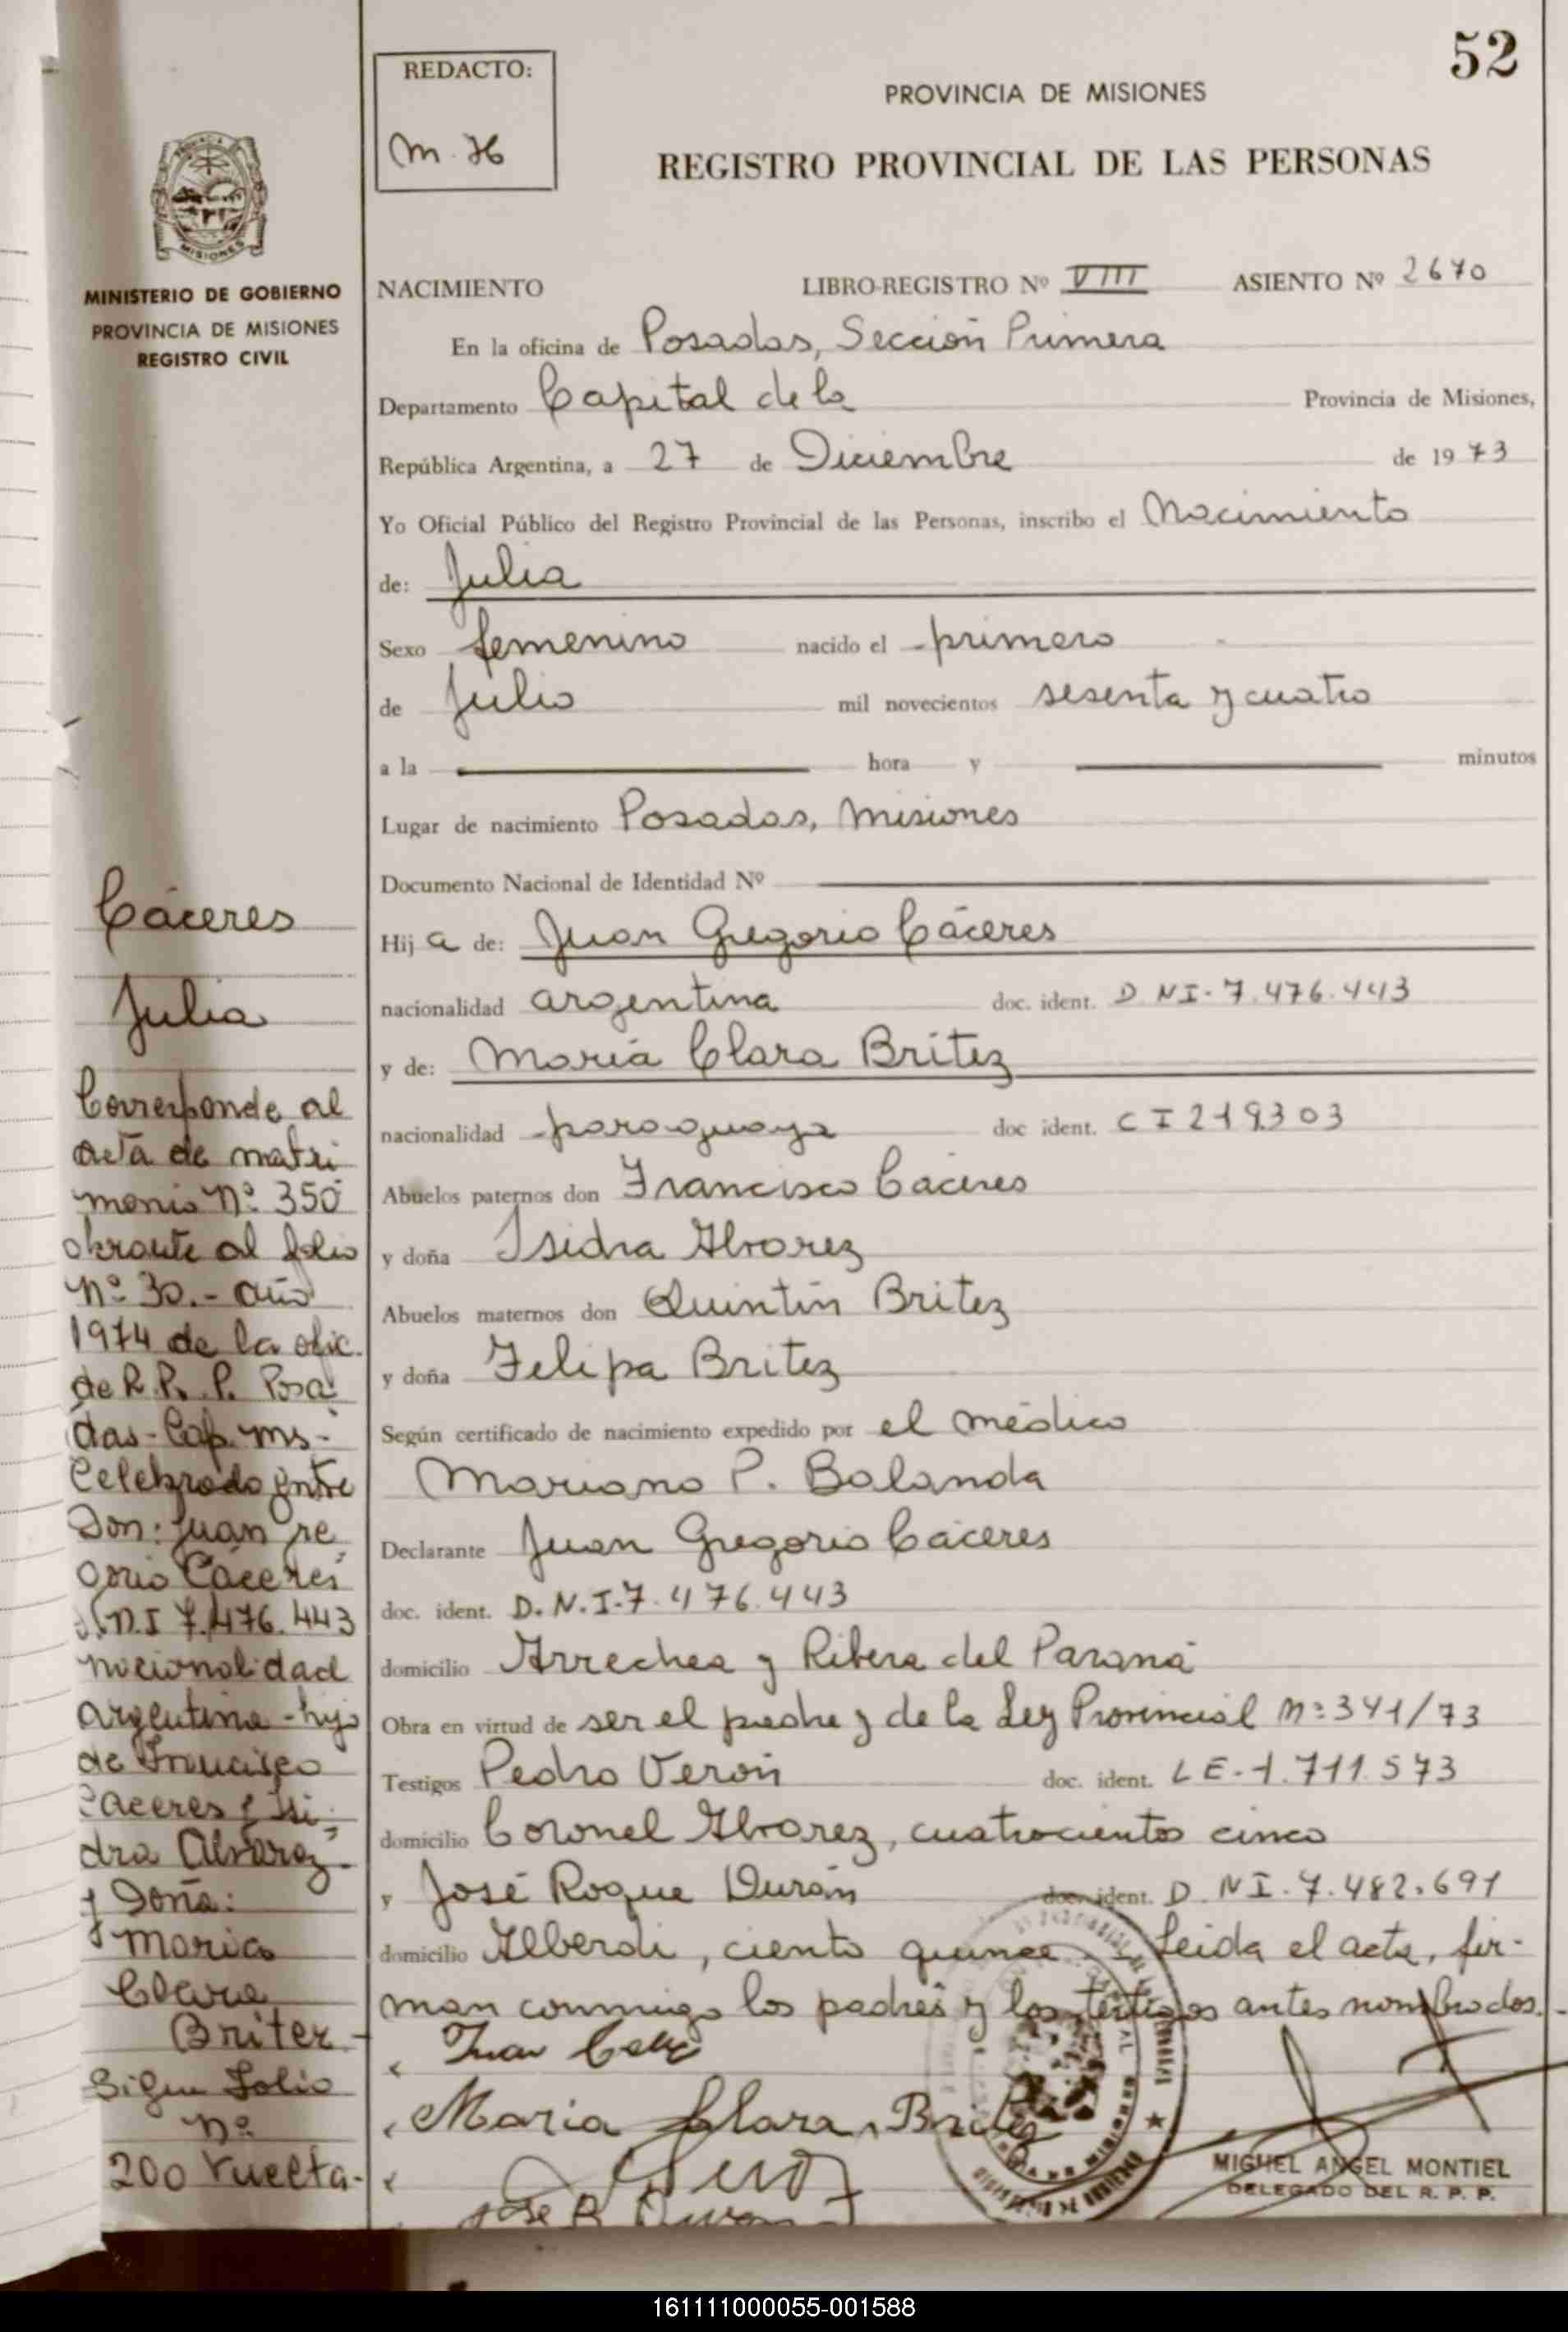 52
REDACTO:
M. H6
PROVINCIA DE MISIONES
REGISTRO PROVINCIAL DE LAS PERSONAS
MISIONES
MINISTERIO DE GOBIERNO
PROVINCIA DE MISIONES
REGISTRO CIVIL
NACIMIENTO LIBRO-REGISTRO Nº VIII ASIENTO Nº 2670
En la oficina de Posadas, Sección Primera
Departamento Capital de la Provincia de Misiones,
República Argentina, a 27 de Diciembre de 1973
Yo Oficial Público del Registro Provincial de las Personas, inscribo el Nacimiento
de: Julia
Sexo femenino nacido el primero
de Julio mil novecientos sesenta y cuatro
a la hora y minutos
Lugar de nacimiento Posadas, Misiones
Documento Nacional de Identidad Nº
Hija de: Juan Gregorio Cáceres
nacionalidad argentina doc. ident. D NI-7.476.443
y de: María Clara Britez
nacionalidad paraguaya doc ident. C I 219303
Abuelos paternos don Francisco Cáceres
y doña Isidra Alvarez
Abuelos maternos don Quintín Britez
y doña Felipa Britez
Según certificado de nacimiento expedido por el médico
Mariano P. Balanda
Declarante Juan Gregorio Cáceres
doc. ident. D.N.I-7.476.443
domicilio Arrechea y Ribera del Paraná
Obra en virtud de ser el padre y de la Ley Provincial Nº 341/73
Testigos Pedro Verón doc. ident. LE-1.711.573
domicilio Coronel Alvarez, cuatrocientos cinco
y José Roque Durán doc. ident. D.NI.7.482.691
domicilio Alberdi, ciento quince. Leida el acta, fir-
man conmigo los padres y los testigos antes nombrados.
Juan
Maria Clara Britez
José R Duran
MIGUEL ANGEL MONTIEL
DELEGADO DEL R. P. P.
Cáceres
Julia
Corresponde al
acta de matri
monio Nº 350
obrante al folio
Nº 30.- año
1974 de la ofic.
de R. P. P. Posa
das-Cap. Ms-
Celebrado entre
Don: Juan Gre
gorio Cáceres
D.N.I 7.476.443
nacionalidad
argentina - hijo
de Francisco
Caceres y Isi-
dra Alvarez-
y Doña:
Maria
Clara
Britez-
Sigue Folio
Nº
200 Vuelta-
161111000055-001588